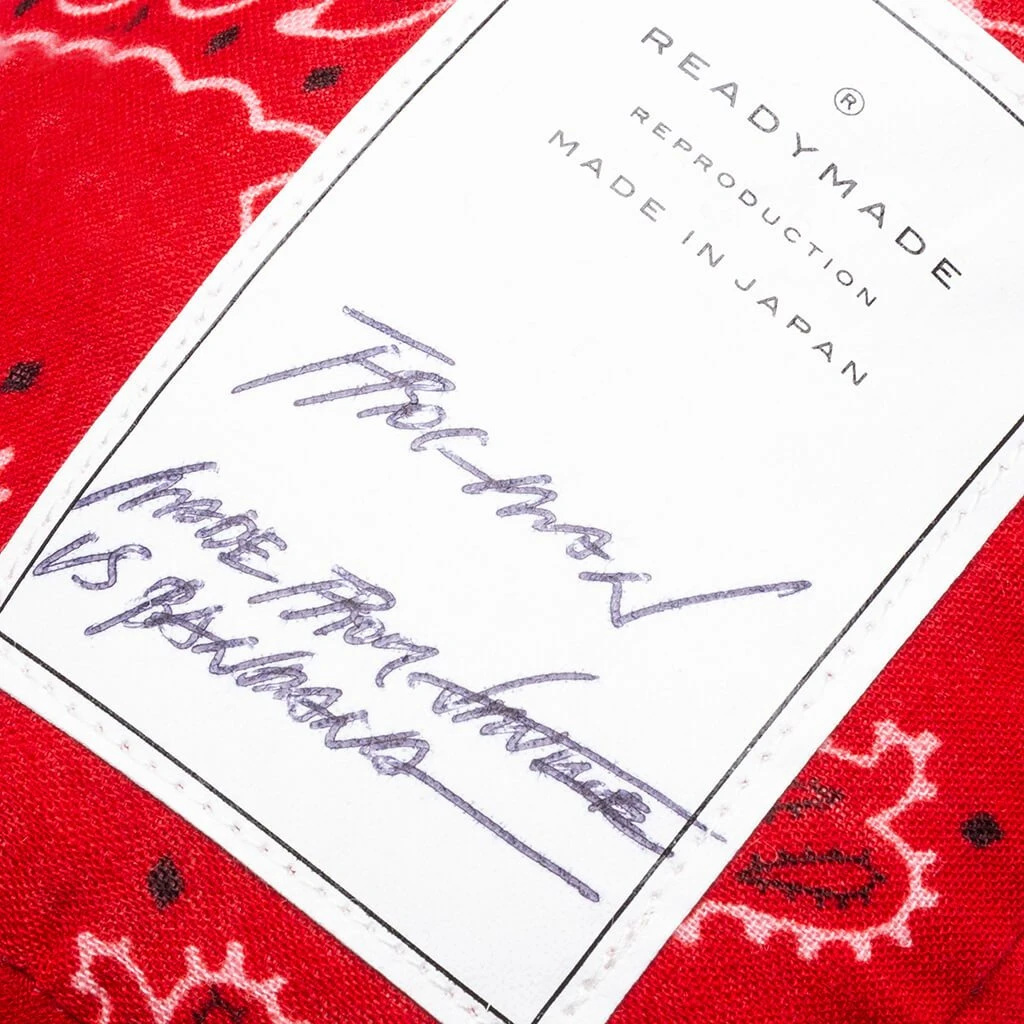 READYMADE ®
REPRODUCTION
MADE IN JAPAN
FROG-MAN
MADE FROM VINTAGE
US BANDANA